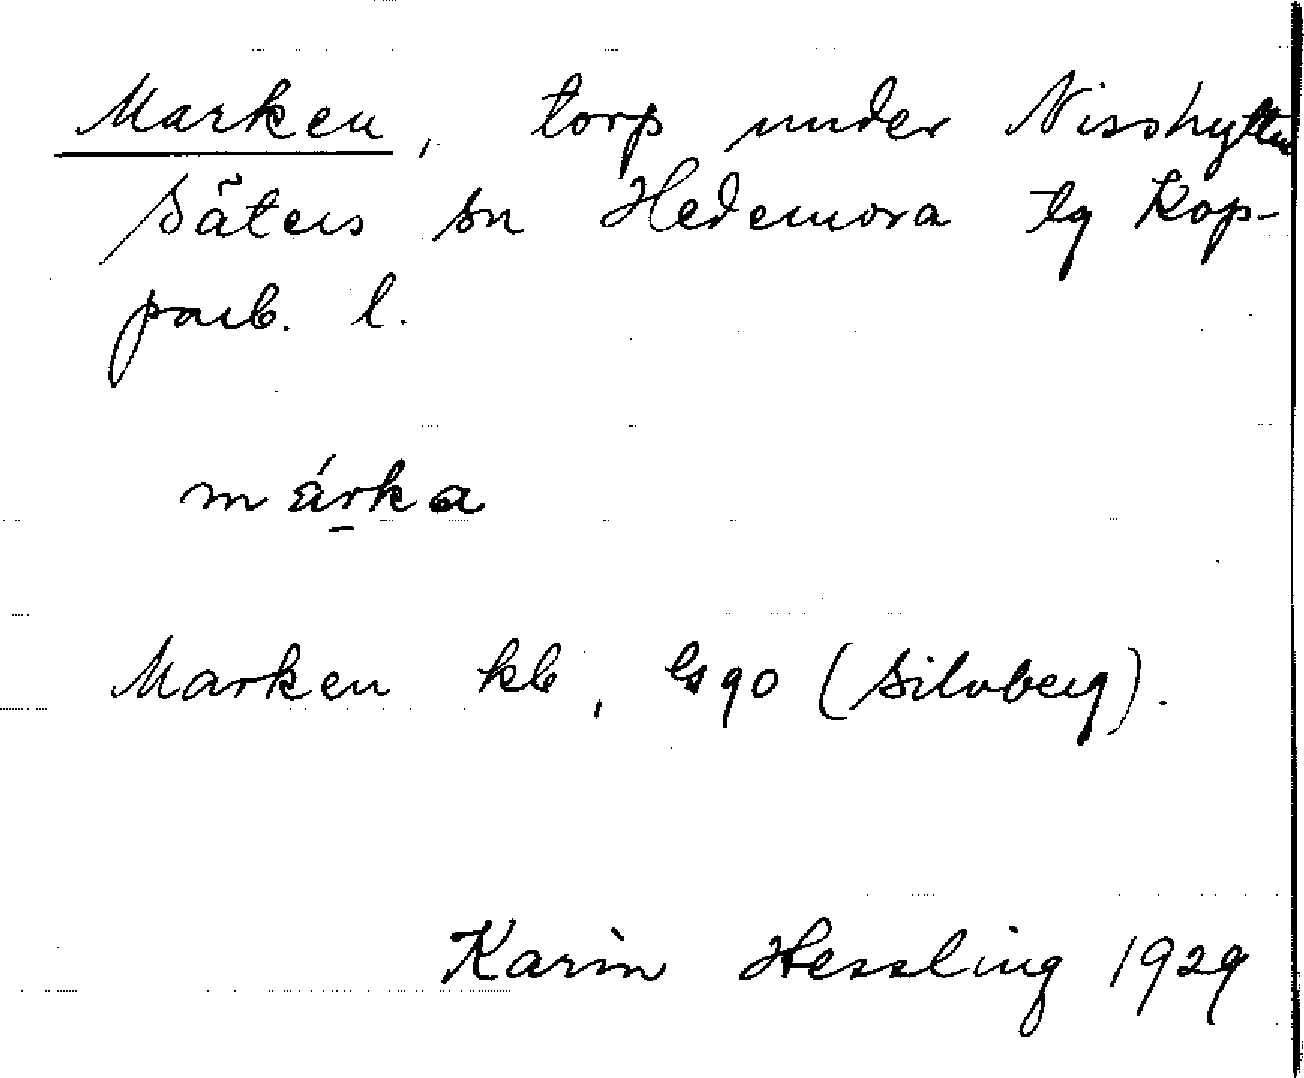 Marken, torp under Nisshyttan
Säters sn Hedemora tg Kop-
parb. l.
márka
Marken kb, Gs 90 (Silvberg).
Karin Hessling 1929